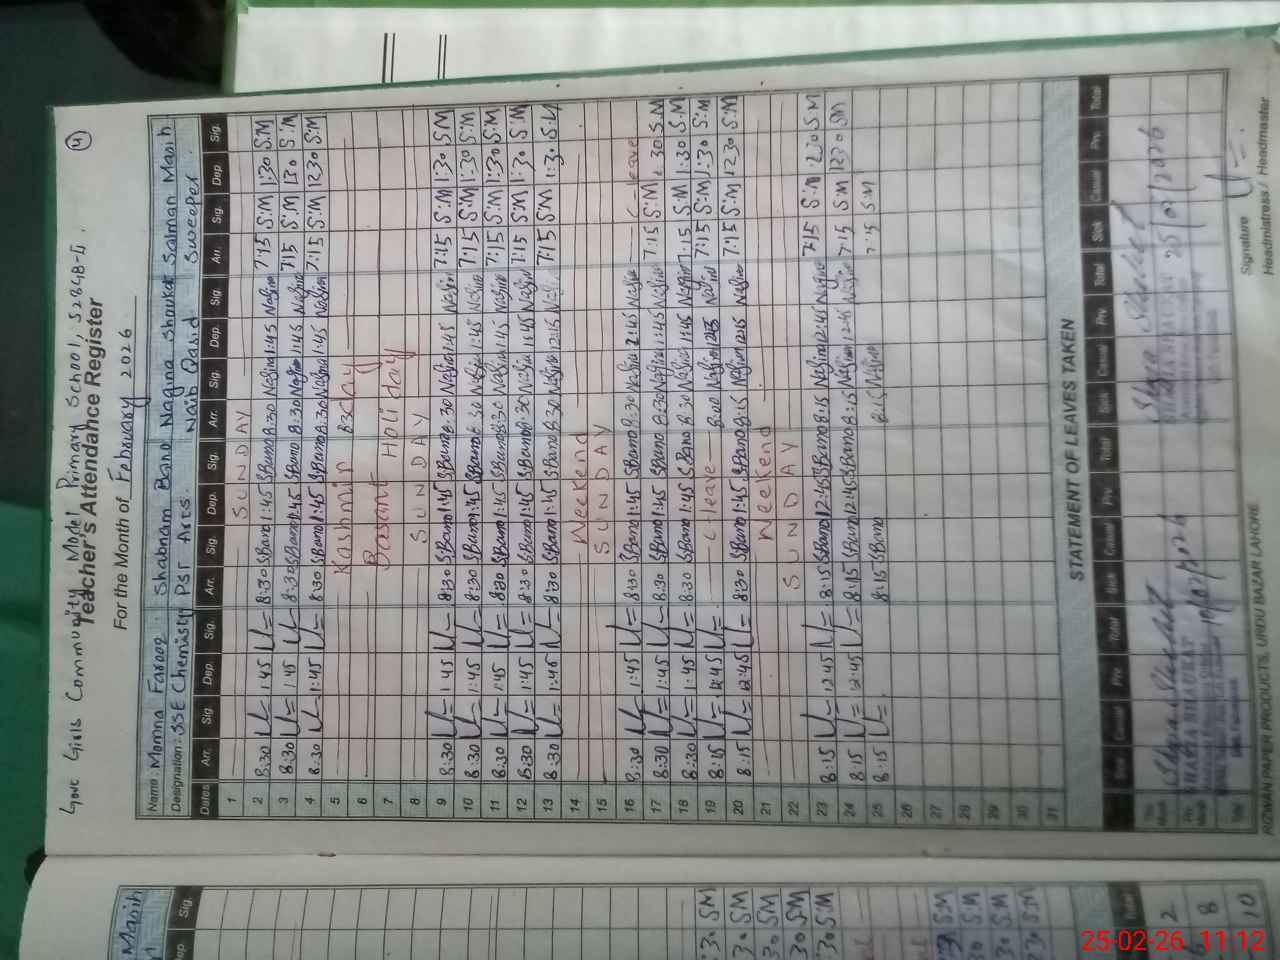 4
Govt Girls Community Model Primary School, 522 4B-I
Teacher's Attendance Register
For the Month of February 2026
Name: Momna Farooq. Shabnam Bano Nagina Shaukat Salman Masih
Designation: SSE Chemistry PST Arts. Naib Qasid Sweeper
Dates Arr. Sig. Dep. Sig. Arr. Sig. Dep. Sig. Arr. Sig. Dep. Sig. Arr. Sig. Dep. Sig.
1 SUNDAY
2 8:30 1:45 8:30 S.Bano 1:45 S.Bano 8:30 Nagina 1:45 Nagina 7:15 S.M 1:30 S.M
3 8:30 1:45 8:30 S.Bano 1:45 S.Bano 8:30 Nagina 1:45 Nagina 7:15 S.M 1:30 S.M
4 8:30 1:45 8:30 S.Bano 1:45 S.Bano 8:30 Nagina 1:45 Nagina 7:15 S.M 12:30 S.M
5 Kashmir Day
6 Basant
7 Holiday
8 SUNDAY
9 8:30 1:45 8:30 S.Bano 1:45 S.Bano 8:30 Nagina 1:45 Nagina 7:15 S.M 1:30 S.M
10 8:30 1:45 8:30 S.Bano 1:45 S.Bano 8:30 Nagina 1:45 Nagina 7:15 S.M 1:30 S.M
11 8:30 1:45 8:30 S.Bano 1:45 S.Bano 8:30 Nagina 1:45 Nagina 7:15 S.M 1:30 S.M
12 8:30 1:45 8:30 S.Bano 1:45 S.Bano 8:30 Nagina 1:45 Nagina 7:15 S.M 1:30 S.M
13 8:30 1:45 8:30 S.Bano 1:45 S.Bano 8:30 Nagina 12:15 Nagina 7:15 S.M 1:30 S.M
14 Weekend
15 SUNDAY
16 8:30 1:45 8:30 S.Bano 1:45 S.Bano 8:30 Nagina 2:45 Nagina C-leave
17 8:30 1:45 8:30 S.Bano 1:45 S.Bano 8:30 Nagina 1:45 Nagina 7:15 S.M 1:30 S.M
18 8:30 1:45 8:30 S.Bano 1:45 S.Bano 8:30 Nagina 1:45 Nagina 7:15 S.M 1:30 S.M
19 8:15 12:45 C-leave 8:00 Nagina Nagina 7:15 S.M 1:30 S.M
20 8:15 12:45 8:30 S.Bano 1:45 S.Bano 8:15 Nagina 12:15 Nagina 7:15 S.M 12:30 S.M
21 Weekend
22 SUNDAY
23 8:15 12:45 8:15 S.Bano 12:45 S.Bano 8:15 Nagina 12:45 Nagina 7:15 S.M 12:30 S.M
24 8:15 12:45 8:15 S.Bano 12:45 S.Bano 8:15 Nagina 12:45 Nagina 7:15 S.M 12:30 S.M
25 8:15 8:15 S.Bano 8:15 Nagina 7:15 S.M
26
27
28
29
30
31
STATEMENT OF LEAVES TAKEN
Sick Casual Prv. Total Sick Casual Prv. Total Sick Casual Prv. Total Sick Casual Prv. Total
Signature
Headmistress / Headmaster
RIZWAN PAPER PRODUCTS, URDU BAZAR LAHORE
Masih
Dep. Sig.
Total
2
8
10
25-02-26 11:12